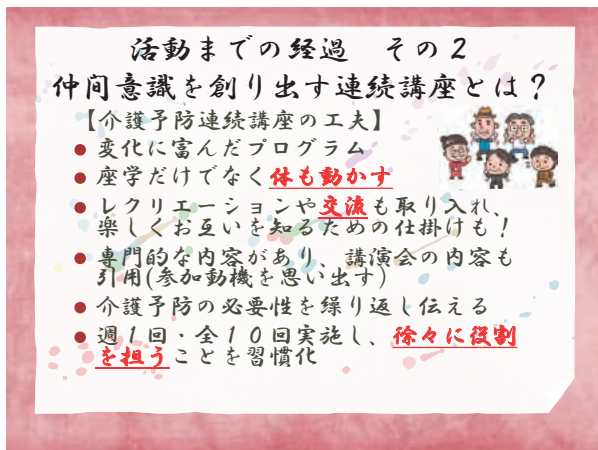 活動までの経過　その２
仲間意識を創り出す連続講座とは？
【介護予防連続講座の工夫】
● 変化に富んだプログラム
● 座学だけでなく体も動かす
● レクリエーションや交流も取り入れ、
楽しくお互いを知るための仕掛けも！
● 専門的な内容があり、講演会の内容も
引用(参加動機を思い出す）
● 介護予防の必要性を繰り返し伝える
● 週１回・全１０回実施し、徐々に役割
を担うことを習慣化